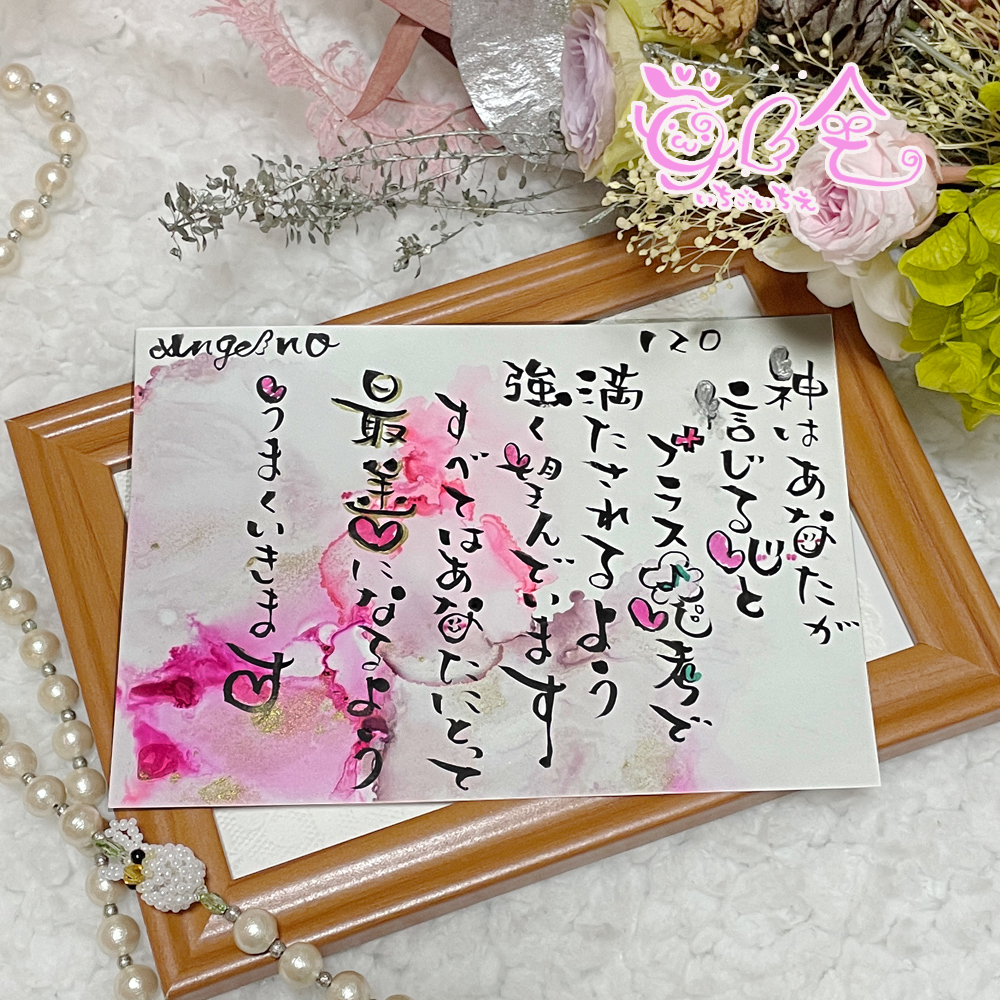 Angel no 120
神はあなたが
信じる心と
プラス思考で
満たされるよう
強く望んでいます
すべてはあなたにとって
最善になるよう
うまくいきます
いちごいちえ